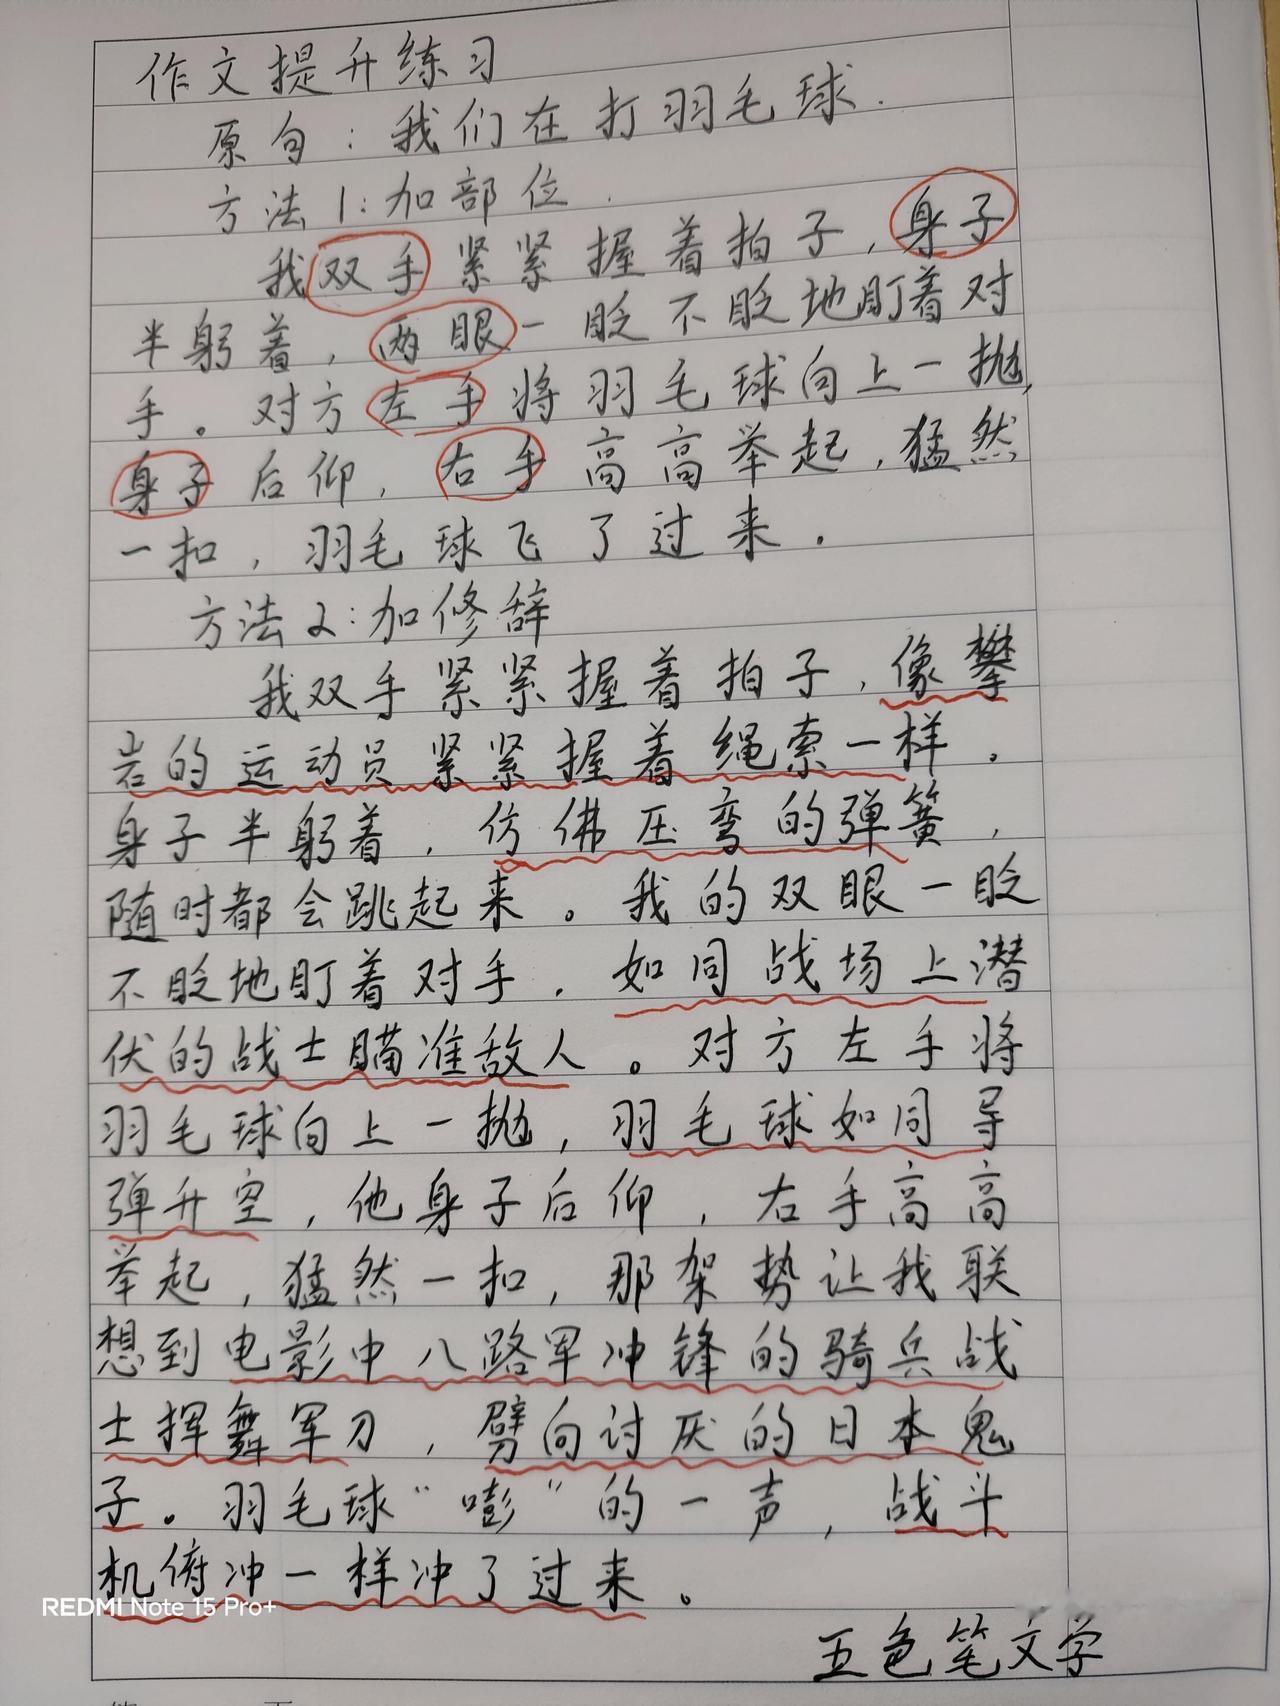 作文提升练习
原句：我们在打羽毛球.
方法1：加部位.
我双手紧紧握着拍子，身子
半躬着，两眼一眨不眨地盯着对
手。对方左手将羽毛球向上一抛，
身子后仰，右手高高举起，猛然
一扣，羽毛球飞了过来.
方法2：加修辞
我双手紧紧握着拍子，像攀
岩的运动员紧紧握着绳索一样。
身子半躬着，仿佛压弯的弹簧，
随时都会跳起来。我的双眼一眨
不眨地盯着对手，如同战场上潜
伏的战士瞄准敌人。对方左手将
羽毛球向上一抛，羽毛球如同导
弹升空，他身子后仰，右手高高
举起，猛然一扣，那架势让我联
想到电影中八路军冲锋的骑兵战
士挥舞军刀，劈向讨厌的日本鬼
子。羽毛球“嘭”的一声，战斗
机俯冲一样冲了过来。
REDMI Note 15 Pro+
五色笔文学